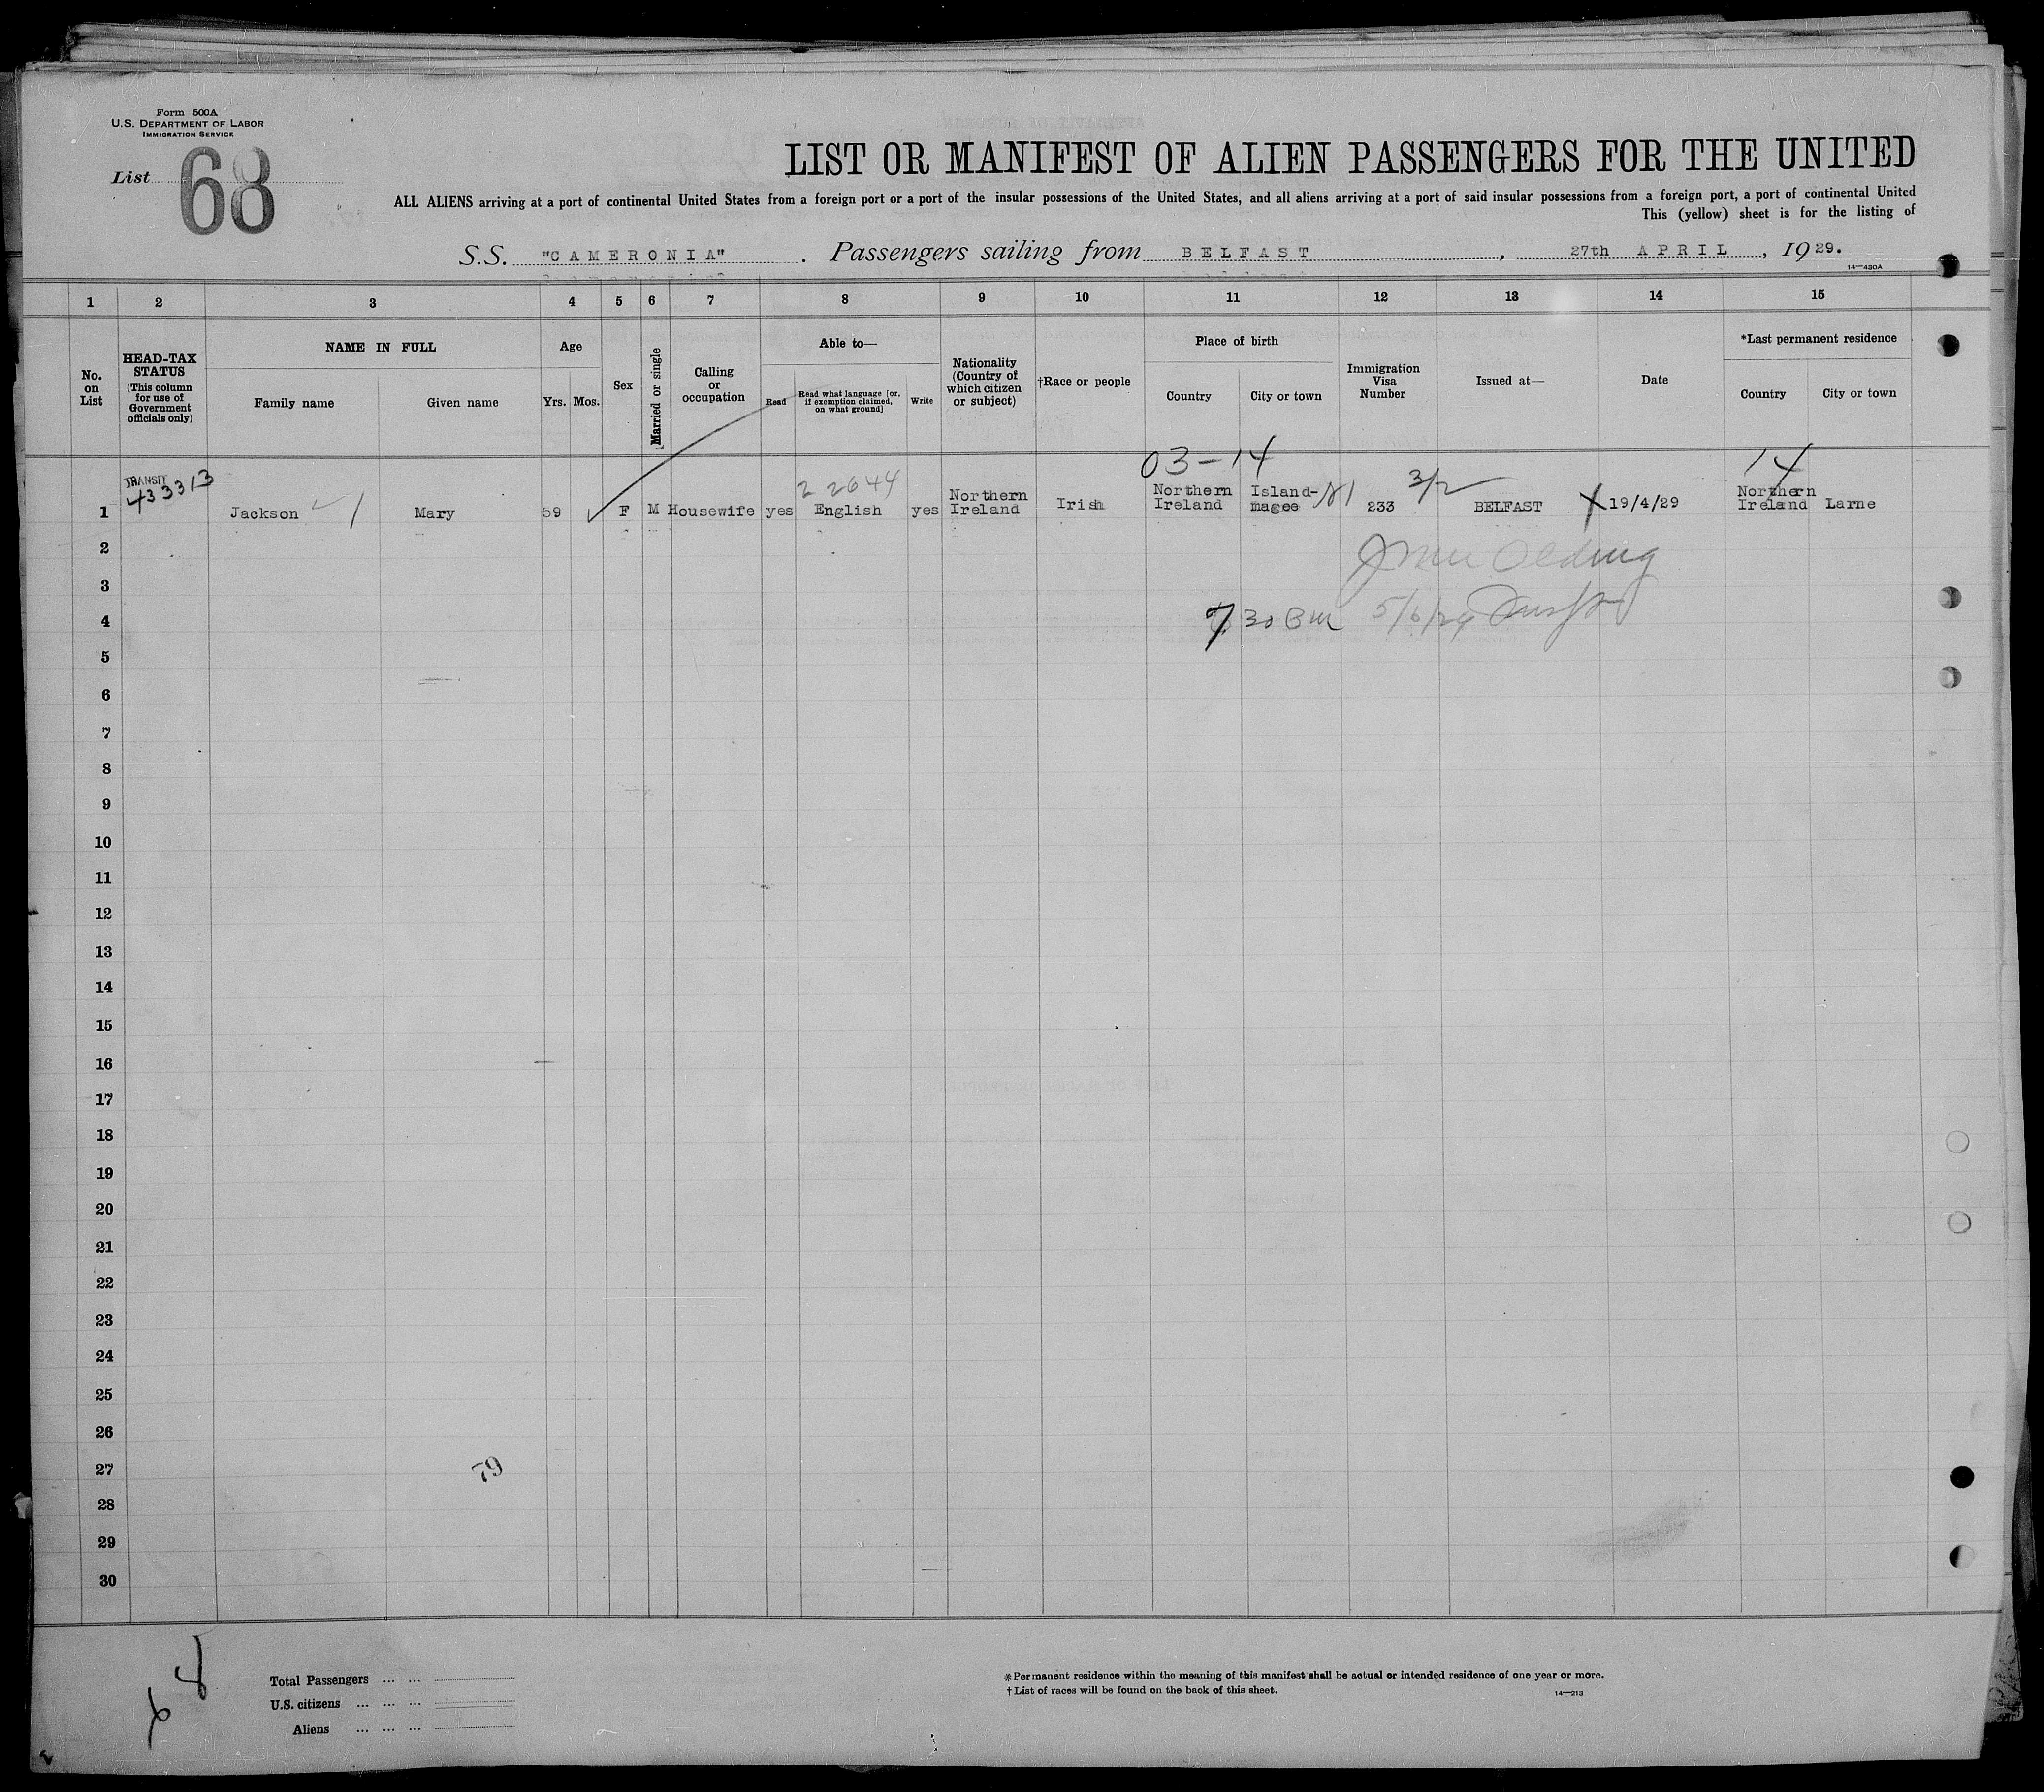 Form 500A
U.S. DEPARTMENT OF LABOR
IMMIGRATION SERVICE
List 68
LIST OR MANIFEST OF ALIEN PASSENGERS FOR THE UNITED
ALL ALIENS arriving at a port of continental United States from a foreign port or a port of the insular possessions of the United States, and all aliens arriving at a port of said insular possessions from a foreign port, a port of continental United
This (yellow) sheet is for the listing of
S.S. "CAMERONIA". Passengers sailing from BELFAST, 27th APRIL, 1929.
14—430A
1 2 3 4 5 6 7 8 9 10 11 12 13 14 15
No. on List
HEAD-TAX STATUS (This column for use of Government officials only)
NAME IN FULL
Family name Given name
Age
Yrs. Mos.
Sex
Married or single
Calling or occupation
Able to—
Read
Read what language [or, if exemption claimed, on what ground]
Write
Nationality (Country of which citizen or subject)
†Race or people
Place of birth
Country City or town
Immigration Visa Number
Issued at—
Date
*Last permanent residence
Country City or town
03-14 14
TRANSIT
433313
2 2644
3/2
1 Jackson Mary 59 F M Housewife yes English yes Northern Ireland Irish Northern Ireland Island-magee 233 BELFAST 19/4/29 Northern Ireland Larne
2
Olding
3
4 30
5
6
7
8
9
10
11
12
13
14
15
16
17
18
19
20
21
22
23
24
25
26
27
79
28
29
30
Total Passengers ... ...
U.S. citizens ... ... ...
Aliens ... ... ...
*Permanent residence within the meaning of this manifest shall be actual or intended residence of one year or more.
†List of races will be found on the back of this sheet.
14—213